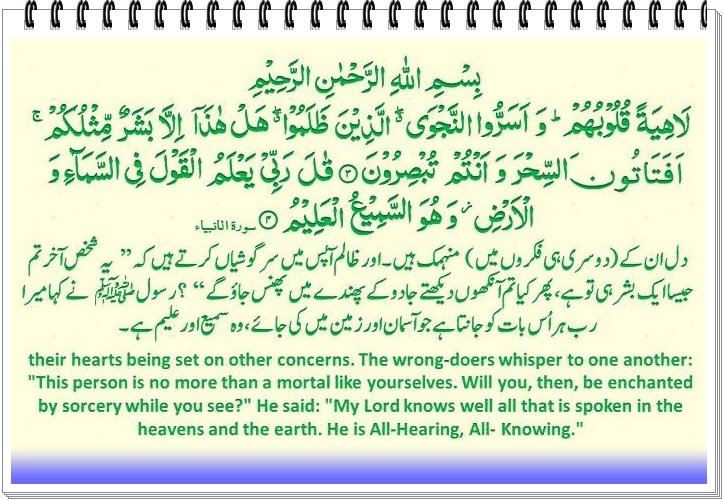 بِسْمِ اللهِ الرَّحْمٰنِ الرَّحِيْمِ
لَاهِيَةً قُلُوْبُهُمْ ؕ وَ اَسَرُّوا النَّجْوَى ۖۗ الَّذِيْنَ ظَلَمُوْا ۖۗ هَلْ هٰذَاۤ اِلَّا بَشَرٌ مِّثْلُكُمْ ۚ
اَفَتَاْتُوْنَ السِّحْرَ وَ اَنْتُمْ تُبْصِرُوْنَ ۝۳ قٰلَ رَبِّيْ يَعْلَمُ الْقَوْلَ فِي السَّمَآءِ وَ
الْاَرْضِ ؗ وَ هُوَ السَّمِيْعُ الْعَلِيْمُ ۝۴ سورة الانبیاء
دل ان کے (دوسری ہی فکروں میں) منہمک ہیں۔ اور ظالم آپس میں سرگوشیاں کرتے ہیں کہ ”یہ شخص آخر تم
جیسا ایک بشر ہی تو ہے، پھر کیا تم آنکھوں دیکھتے جادو کے پھندے میں پھنس جاؤ گے“؟ رسول ﷺ نے کہا میرا
رب ہر اُس بات کو جانتا ہے جو آسمان اور زمین میں کی جائے، وہ سمیع اور علیم ہے۔
their hearts being set on other concerns. The wrong-doers whisper to one another:
"This person is no more than a mortal like yourselves. Will you, then, be enchanted
by sorcery while you see?" He said: "My Lord knows well all that is spoken in the
heavens and the earth. He is All-Hearing, All- Knowing."